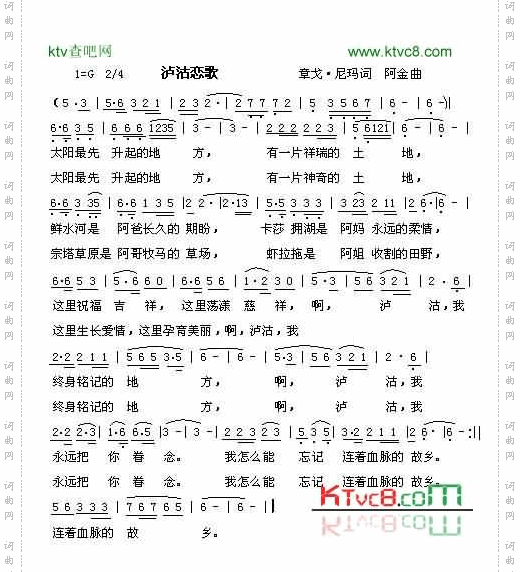 ktv查吧网 www.ktvc8.com
1=G 2/4 泸沽恋歌 章戈·尼玛词 阿金曲
( 5·3 | 5·6 3 2 1 | 2 3 2· | 2 7 7 7 2 | 5 3 5 6 7 | 6 - | 6 - )|
6·6 3 5 | 6 6 6 1235 | 3 - | 3 - | 2 2 2 2 3 | 5 6121 | 6 - | 6 - |
太阳最先 升起的地 方, 有一片祥瑞的 土 地,
太阳最先 升起的地 方, 有一片神奇的 土 地,
6·6 3 35 | 6 6 6 1 6 3 | 2 - | 2·13 | 5·5 3 3 3 | 3 23 2 1 1 | 2·6 | 6 - |
鲜水河是 阿爸长久的 期盼, 卡莎 拥湖是 阿妈 永远的柔情,
宗塔草原是 阿哥牧马的 草场, 虾拉拖是 阿姐 收割的田野,
6·6 5 3 | 5 3 5 | 6·6 5 3 | 1·2 3 0 | 5 - | 5 3 5 6 | 3 6 2 1 | 2·6 |
这里祝福 吉 祥, 这里荡漾 慈 祥, 啊, 泸 沽, 我
这里生长爱情, 这里孕育美丽, 啊, 泸沽, 我
2·2 2 1 1 | 5 6 5 3·5 | 6 - | 6 - | 5·3 | 5 6 3 2 1 | 2·6 |
终身铭记的 地 方, 啊, 泸 沽, 我
终身铭记的 地 方, 啊, 泸 沽, 我
2·2 2·3 | 1·6 6·5 | 3 - | 3 - | 2 2 3 2 3 | 5 3 5 | 3·2 2 1 1 | 2·6 | 6 - :|
永远把 你 眷 念。 我怎么能 忘记 连着血脉的 故乡。
永远把 你 眷 念。 我怎么能 忘记 连着血脉的 故乡。
5·5 5 3 3 | 5 6 6 7 | 7 6 7 6 5 | 6 - | 6 - |
KTvc8.com
连着血脉的 故 乡。
词曲网